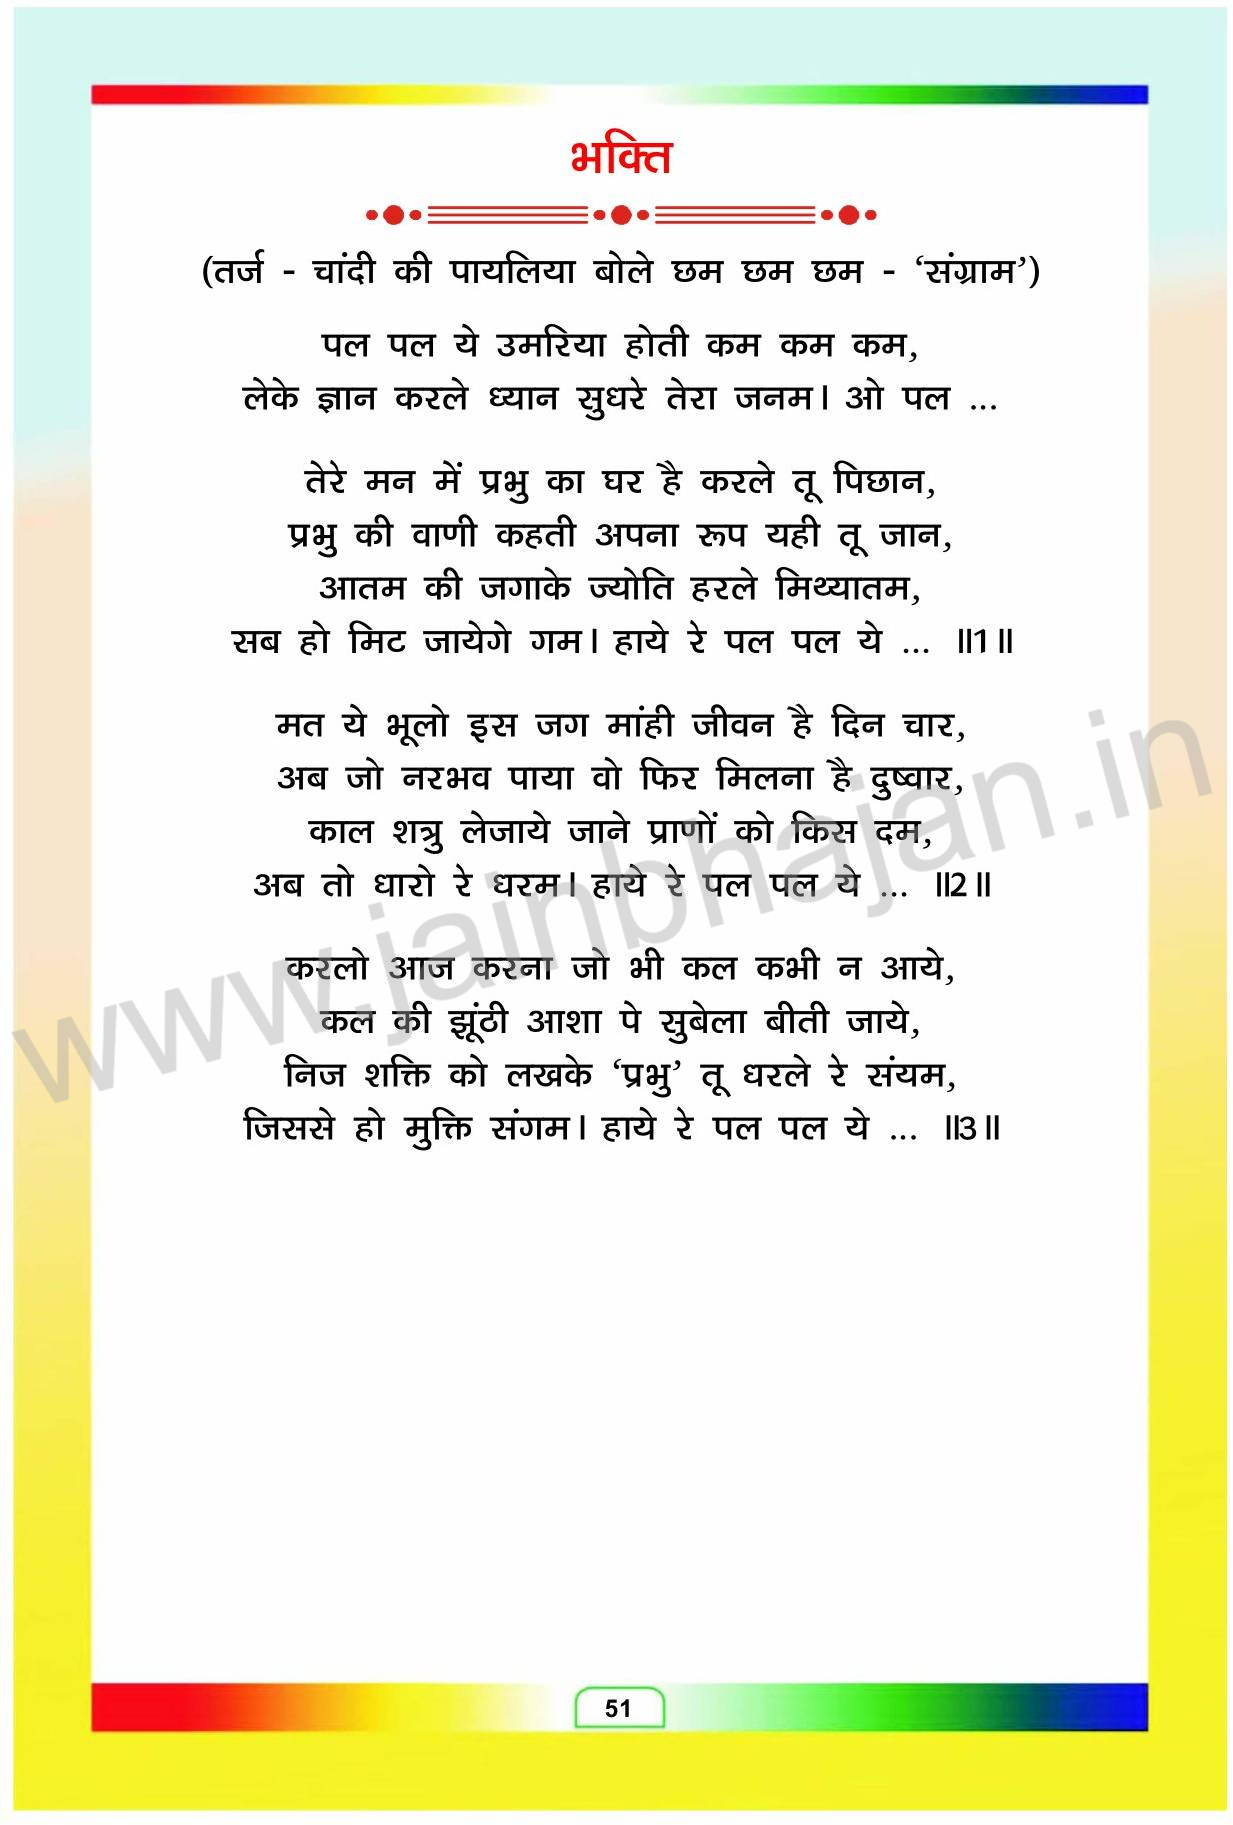 भक्ति
(तर्ज - चांदी की पायलिया बोले छम छम छम - ‘संग्राम’)
पल पल ये उमरिया होती कम कम कम,
लेके ज्ञान करले ध्यान सुधरे तेरा जनम। ओ पल ...
तेरे मन में प्रभु का घर है करले तू पिछान,
प्रभु की वाणी कहती अपना रूप यही तू जान,
आतम की जगाके ज्योति हरले मिथ्यातम,
सब हो मिट जायेगे गम। हाये रे पल पल ये ... ॥1॥
मत ये भूलो इस जग मांही जीवन है दिन चार,
अब जो नरभव पाया वो फिर मिलना है दुष्वार,
काल शत्रु लेजाये जाने प्राणों को किस दम,
अब तो धारो रे धरम। हाये रे पल पल ये ... ॥2॥
करलो आज करना जो भी कल कभी न आये,
कल की झूंठी आशा पे सुबेला बीती जाये,
निज शक्ति को लखके ‘प्रभु’ तू धरले रे संयम,
जिससे हो मुक्ति संगम। हाये रे पल पल ये ... ॥3॥
www.jainbhajan.in
51